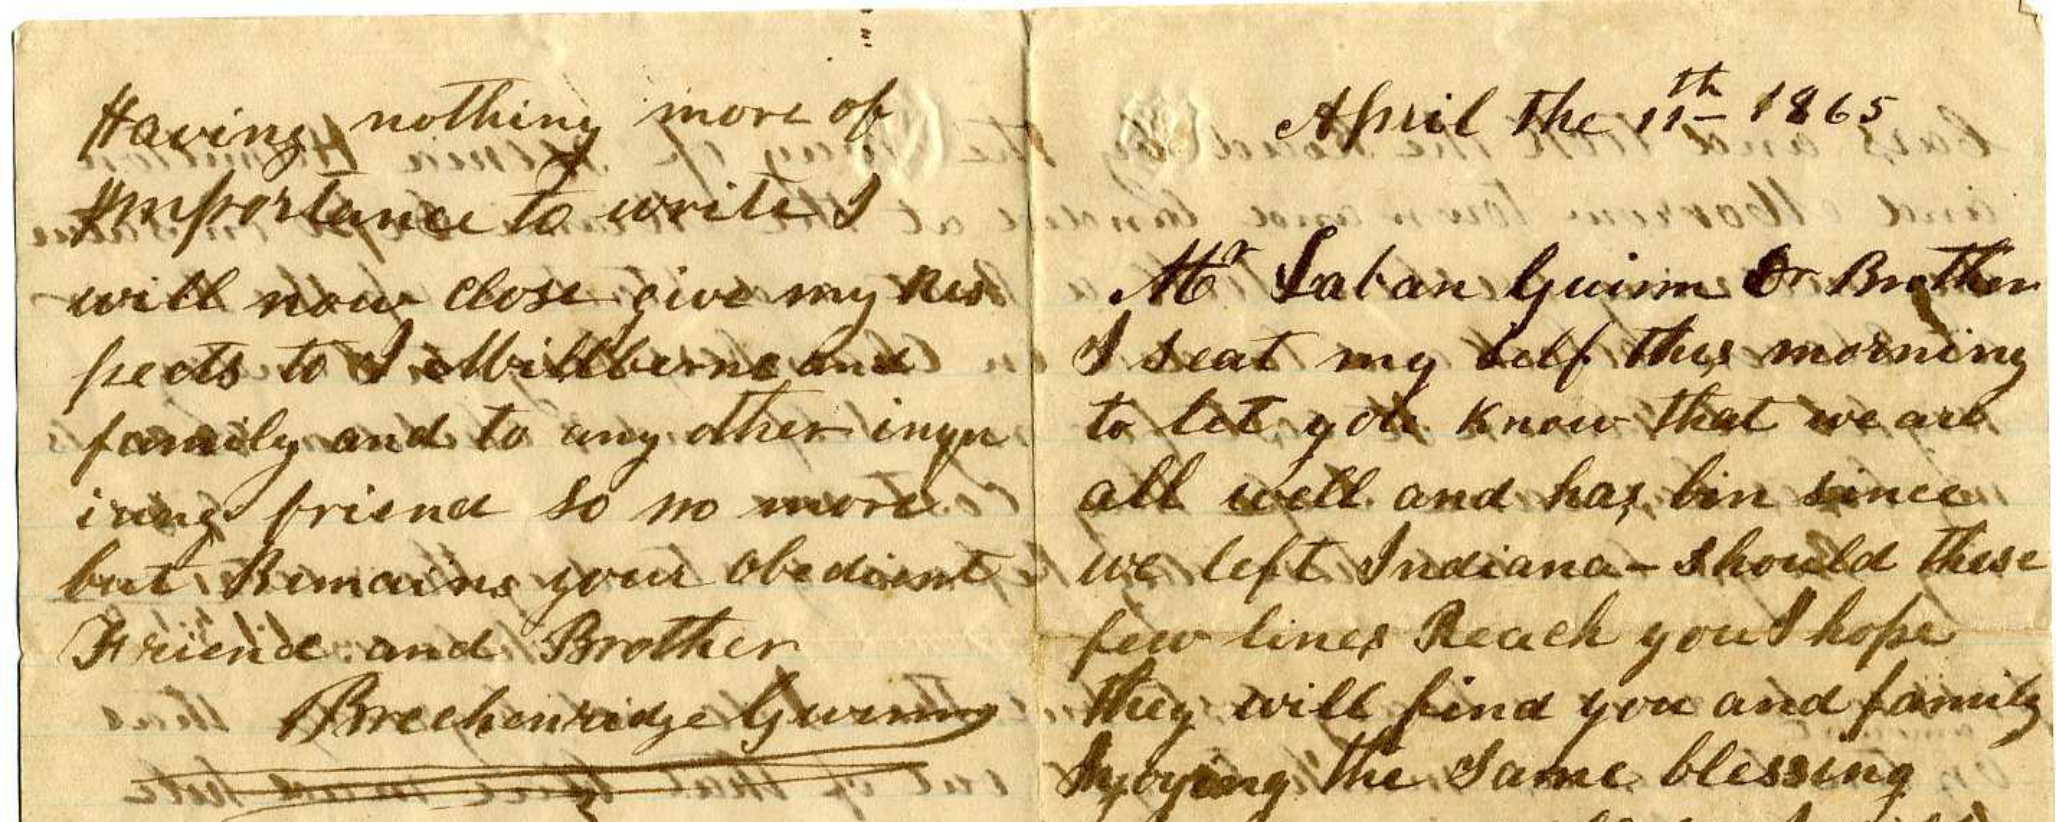 Having nothing more of
Importance to write I
will now close give my Res
pects to J Millberne and
family and to any other inqu
iring friend so no more
but Remains your obedient
Friend and Brother
Brechenridge Gwinn
April the 11th 1865
Mr Laban Guinn Dr Brother
I seat my self this morning
to let you know that we are
all well and has bin since
we left Indiana - should these
few lines Reach you I hope
they will find you and family
Injoying the same blessing